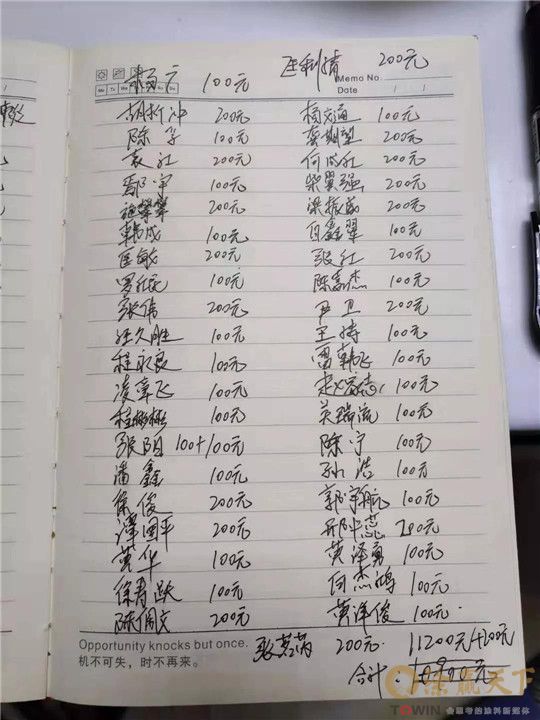 200元
Mo Tu We Th Fr Sa Su
Memo No.
Date / /
100元
200元 100元
陈 100元 200元
袁红 200元 何成红 200元
鄢宇 100元 柴翼强 200元
200元 梁振威 200元
韩成 100元 向鑫翠 100元
匡敏 200元 张红 200元
100元 陈嘉杰 200元
张伟 200元 尹卫 200元
汪久胜 100元 王持 100元
程永良 100元 雷韩飞 100元
凌章飞 100元 100元
100元 吴瑞流 100元
张阳 100+100元 陈宁 100元
潘鑫 100元 孙浩 100元
徐俊 200元 郭宇航 100元
谭国平 200元 邢中蕊 200元
黄华 100元 黄泽勇 100元
徐春跃 100元 向杰鸿 100元
陈佩文 200元 黄泽俊 100元
Opportunity knocks but once.
机不可失，时不再来。
200元 11200元+200元
合计：10900元
涂赢天下
TOWIN 会思考的涂料新媒体